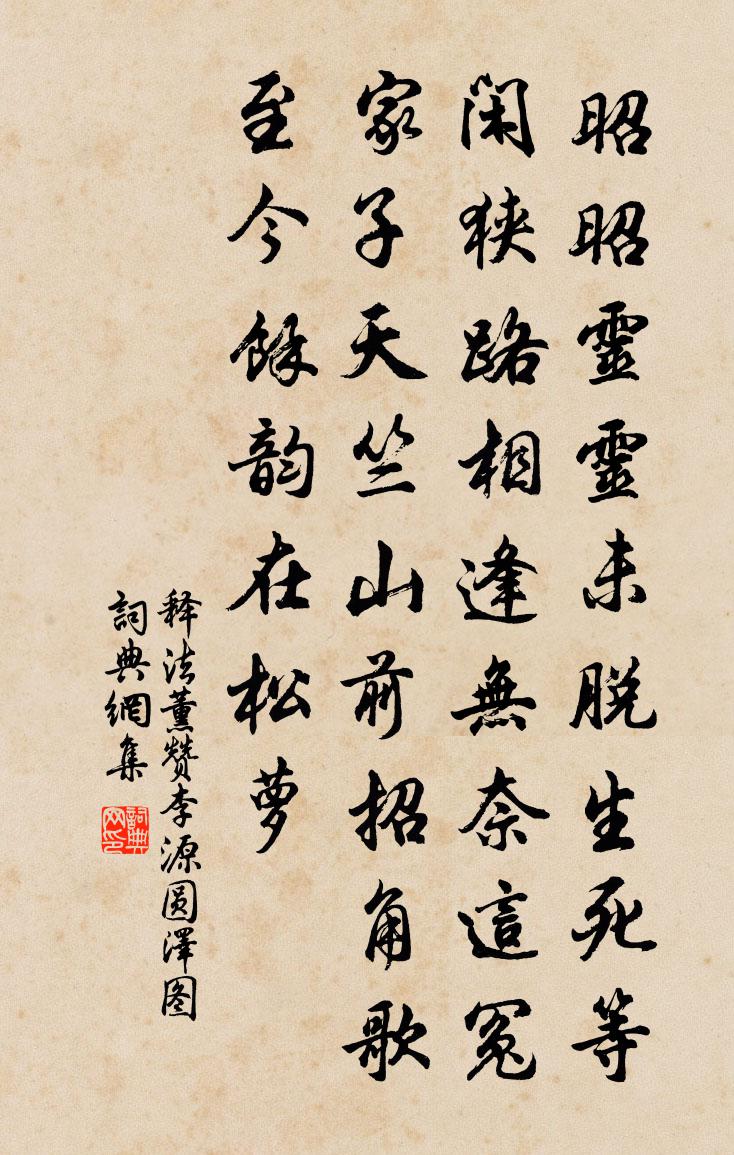 昭昭靈靈未脱生死等
閑狹路相逢無奈這冤
家子天竺山前招角歌
至今餘韵在松萝
释法薰赞李源圆澤图
詞典網集
詞典网印